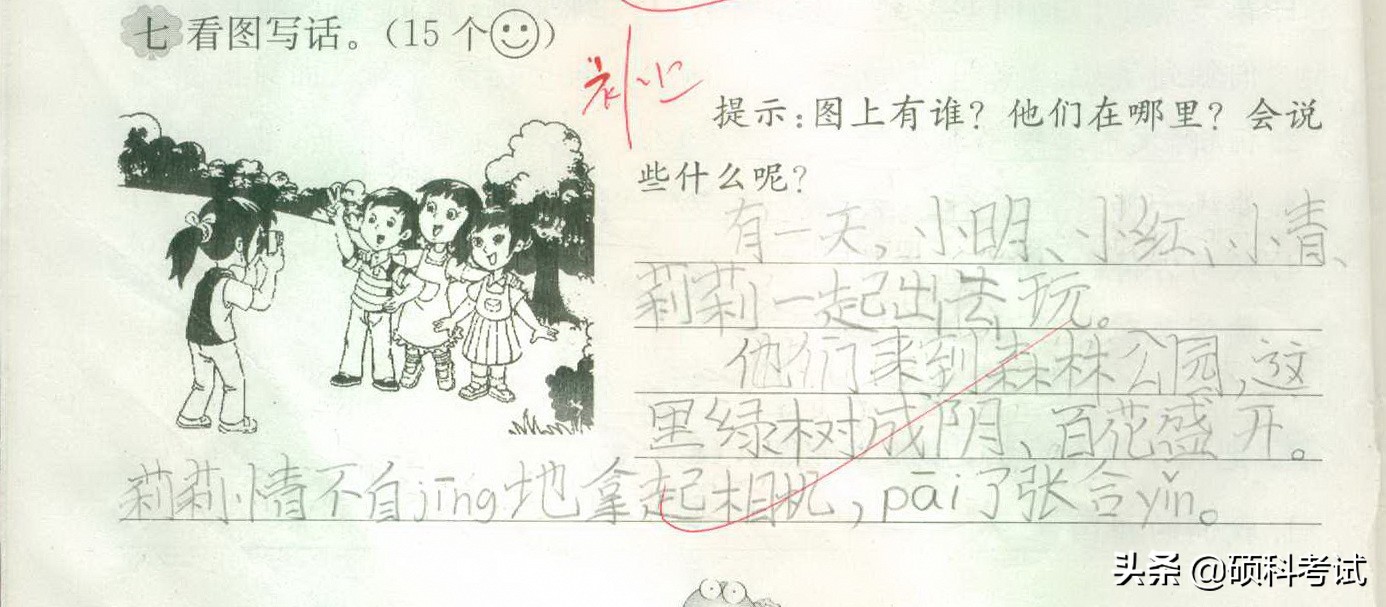 七 看图写话。（15个）
提示：图上有谁？他们在哪里？会说
些什么呢？
有一天，小明、小红、小青、
莉莉一起出去玩。
他们来到森林公园，这
里绿树成阴、百花盛开。
莉莉情不自jīng地拿起相机，pāi了张合yǐn。
头条 @硕科考试